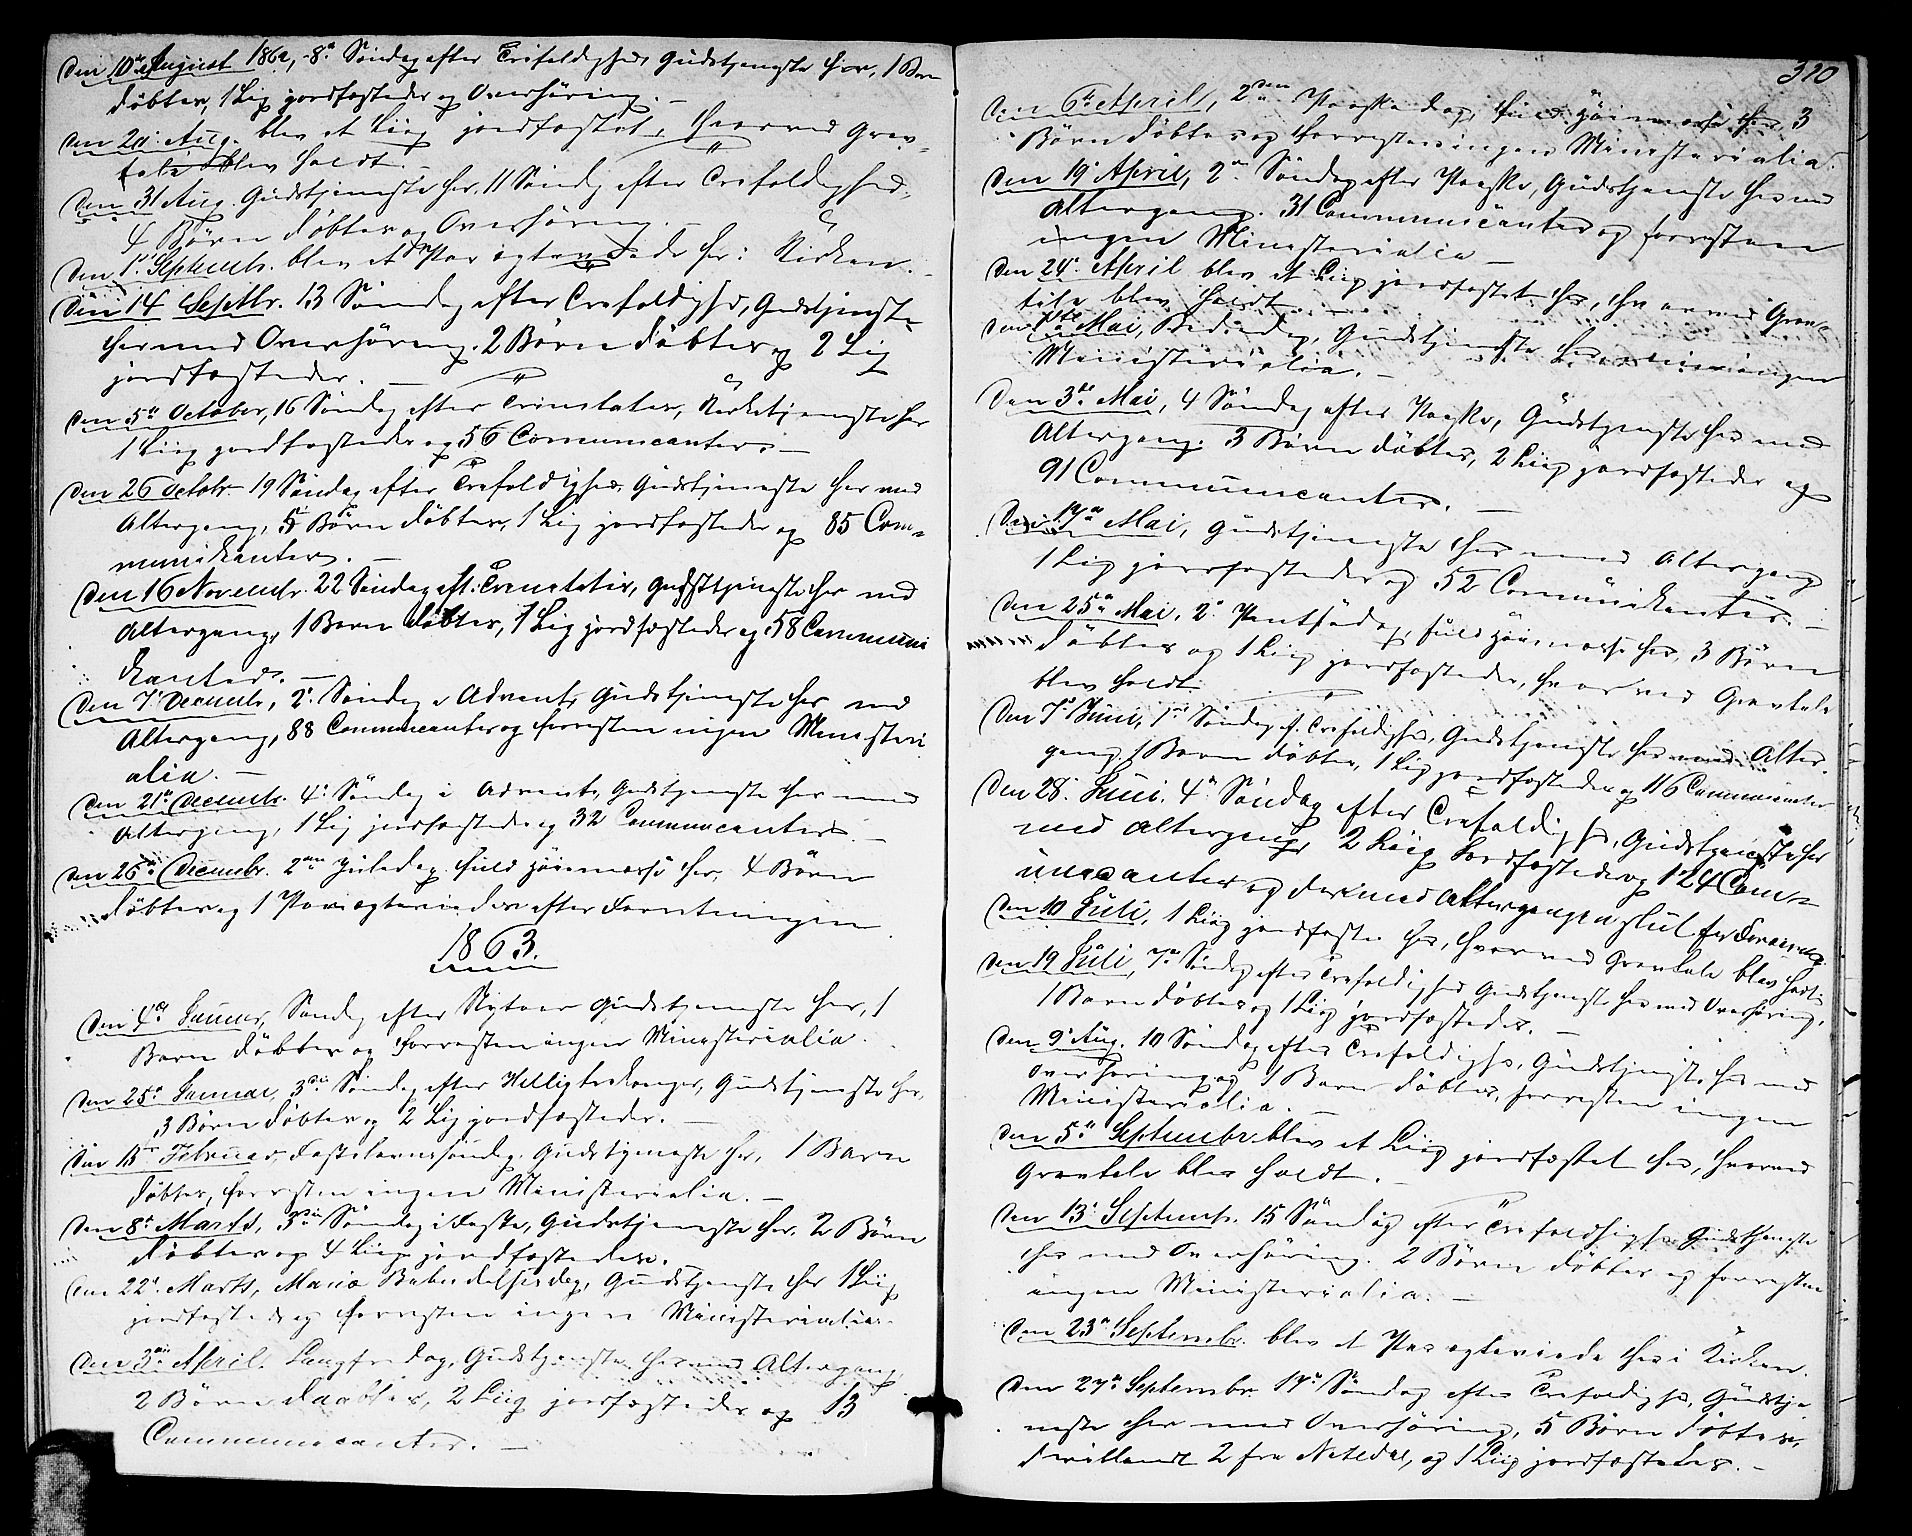 Den 10de August 1862, 8de Søndag efter Trefoldighed Gudstjeneste her, 1 Barn
døbtes, 1 Lig jordfæstedes og Overhøring.
Den 20. Aug. blev et Liig jordfæstet, hvorved Grav-
tale blev holdt. -
Den 31 Aug. Gudstjeneste her, 11 Søndag efter Trefoldighed,
4 Børn døbtes og Overhøring. -
Den 1ste Septembr. blev et Par ægteviede her i Kirken. -
Den 14 Septbr. 13 Søndag efter Trefoldighed, Gudstjeneste
her med Overhøring. 2 Børn døbtes og 2 Lig
jordfæstedes. -
Den 5te October, 16 Søndag efter Trinitatis, Kirketjeneste her
1 Liig jordfæstedes og 56 Communicanter. -
Den 26 Octobr. 19 Søndag efter Trefoldighed, Gudstjeneste her med
Altergang, 5 Børn døbtes, 1 Lig jordfæstedes og 85 Com-
munikanter. -
Den 16 Novembr. 22 Søndag eft. Trinitatis, Gudstjeneste her med
Altergang, 1 Barn døbtes, 1 Lig jordfæstedes og 58 Communi
kanter. -
Den 7de Decembr, 2. Søndag i Advent, Gudstjeneste her med
Altergang, 88 Communicanter og forresten ingen Ministeri
alia. -
Den 21de Decembr. 4de Søndag i Advent, Gudstjeneste her med
Altergang, 1 Lig jordfæstedes og 32 Communicanter. -
Den 26de Decembr. 2den Juledag. Fuld Høimesse her, 4 Børn
døbtes og 1 Par ægteviedes efter Forretningen
1863.
Den 4de Januar, Søndag efter Nytaar Gudstjeneste her, 1
Barn døbtes og forresten ingen Ministerialia.
Den 25de Januar, 3die Søndag efter Helligtrekonger, Gudstjeneste her,
3 Børn døbtes og 2 Lig jordfæstedes. -
Den 15de Februar, Fastelavnssøndag. Gudstjeneste her, 1 Barn
døbtes, forresten ingen Ministerialia. -
Den 8de Marts, 3die Søndag i Faste, Gudstjeneste her, 2 Børn
døbtes og 4 Liig jordfæstedes.
Den 22de Marts, Mariæ Bebudelsesdag, Gudstjeneste her 1 Liig
jordfæstedes og forresten ingen Ministerialia.
Den 3die April. Langfredag, Gudstjeneste her med Altergang,
2 Børn daabtes, 2 Liig jordfæstedes og 13
Communicanter. -
310
Den 6te April, 2den Paaske dag, fuld Høimesse her, 3
Børn døbtes og forresten ingen Ministerialia.
Den 19de April, 2den Søndag efter Paaske, Gudstjeneste her med
Altergang. 31 Communicanter og forresten
ingen Ministerialia -
Den 24de April blev et Liig jordfæstet her, hvorved Grav-
tale blev holdt.
Den 1ste Mai, Bededag, Gudstjeneste her, ingen
Ministerialia. -
Den 3de Mai, 4 Søndag efter Paaske, Gudstjeneste her med
Altergang. 3 Børn døbtes, 2 Liig jordfæstedes og
91 Communicanter. -
Den 17de Mai, Gudstjeneste her med Altergang
1 Lig jordfæstedes og 52 Communikanter. -
Den 25de Mai, 2. Pintsedag, fuld Høimesse her, 3 Børn
døbtes og 1 Liig jordfæstedes, hvorved Gravtale
blev holdt
Den 7de Juni, 1ste Søndag ef. Trefoldighed, Gudstjeneste her med Alter-
gang, 1 Barn døbtes, 1 Lig jordfæstedes og 116 Communicanter
Den 28. Juni, 4de Søndag efter Trefoldighed, Gudstjeneste her
med Altergang, 2 Liig jordfæstedes og 124 Com-
municanter og dermed Altergangen slut for
Den 10 Juli, 1 Liig jordfæstet her, hvorved Gravtale blev holdt.
Den 19 Juli, 7de Søndag efter Trefoldighed Gudstjeneste her med Overhøring,
1 Barn døbtes og 1 Liig jordfæstedes. -
Den 9de Aug. 10 Søndag efter Trefoldighed, Gudstjeneste her med
Overhøring og 1 Barn døbtes, forresten ingen
Ministerialia. -
Den 5te Septembr. blev et Liig jordfæstet her, hvorved
Gravtale blev holdt. -
Den 13de Septembr. 15 Søndag efter Trefoldighed Gudstjeneste
her med Overhøring. 2 Børn døbtes og forresten
ingen Ministerialia. -
Den 23de Septembr. blev et Par ægteviede her i Kirken.
Den 27de Septembr. 17de Søndag efter Trefoldighed, Gudstje
neste her med Overhøring, 5 Børn døbtes,
deriblandt 2 fra Nitedal, og 1 Liig jordfæstedes. -